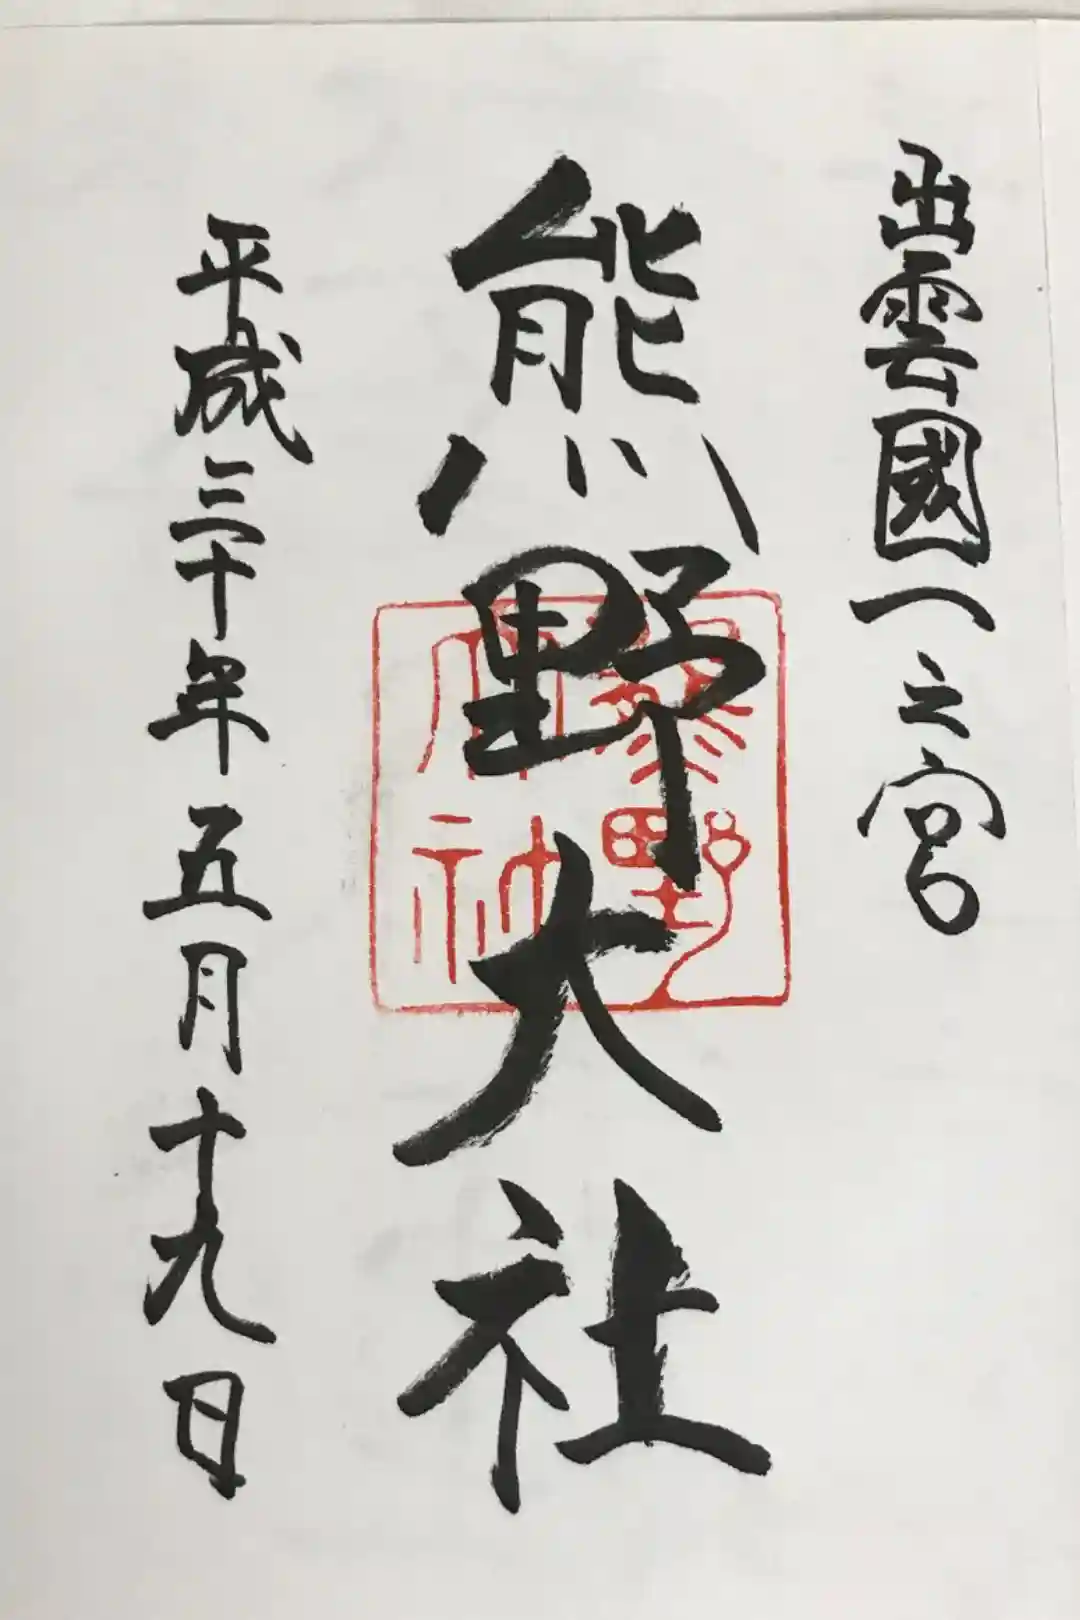 出雲國一之宮
熊野大社
熊野大社
平成三十年五月十九日